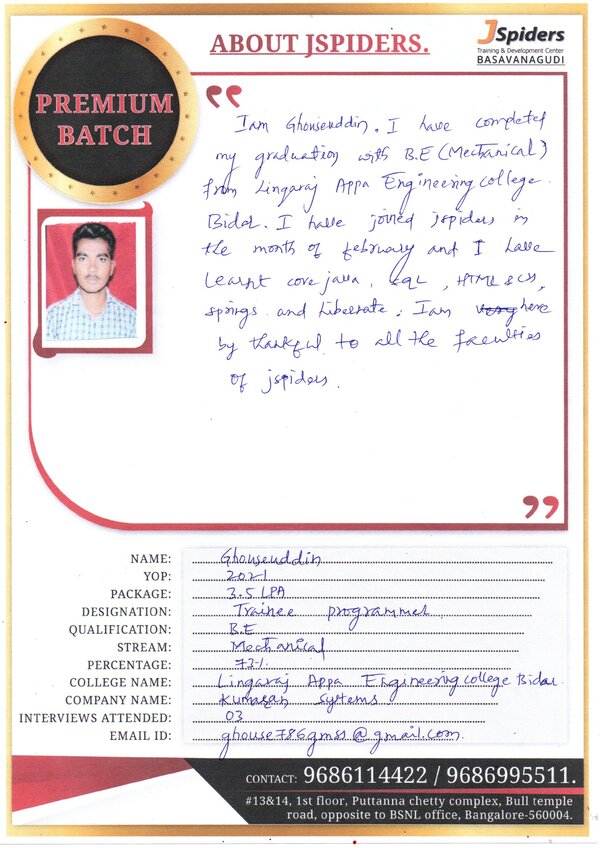 ABOUT JSPIDERS.
JSpiders
Training & Development Center
BASAVANAGUDI
PREMIUM
BATCH
Iam Ghouseuddin. I have completed
my graduation with B.E (Mechanical)
from Lingaraj Appa Engineering college
Bidar. I have joined jspiders in
the month of february and I have
Learnt core java, SQL, HTML & CSS,
springs and Liberate. Iam very here
by thankful to all the faculties
of jspiders.
NAME: Ghouseuddin
YOP: 2021
PACKAGE: 3.5 LPA
DESIGNATION: Trainee programmer
QUALIFICATION: B.E
STREAM: Mechanical
PERCENTAGE: 73%
COLLEGE NAME: Lingaraj Appa Engineering college Bidar
COMPANY NAME: Kumaran Systems
INTERVIEWS ATTENDED: 03
EMAIL ID: ghouse786gmss@gmail.com
CONTACT: 9686114422 / 9686995511.
#13&14, 1st floor, Puttanna chetty complex, Bull temple
road, opposite to BSNL office, Bangalore-560004.